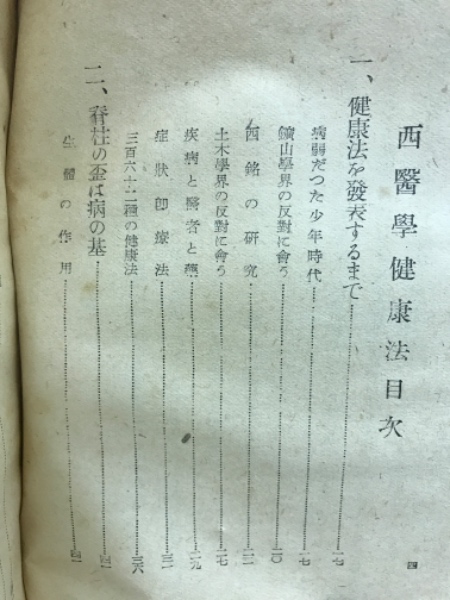 西醫學健康法目次
一、健康法を發表するまで……一七
病弱だつた少年時代……一七
鑛山學界の反對に會う……二〇
西銘の研究……二二
土木學界の反對に會う……二七
疾病と醫者と藥……二九
症狀卽療法……三二
三百六十二種の健康法……三六
二、脊柱の歪は病の基……四一
生體の作用……四一
四